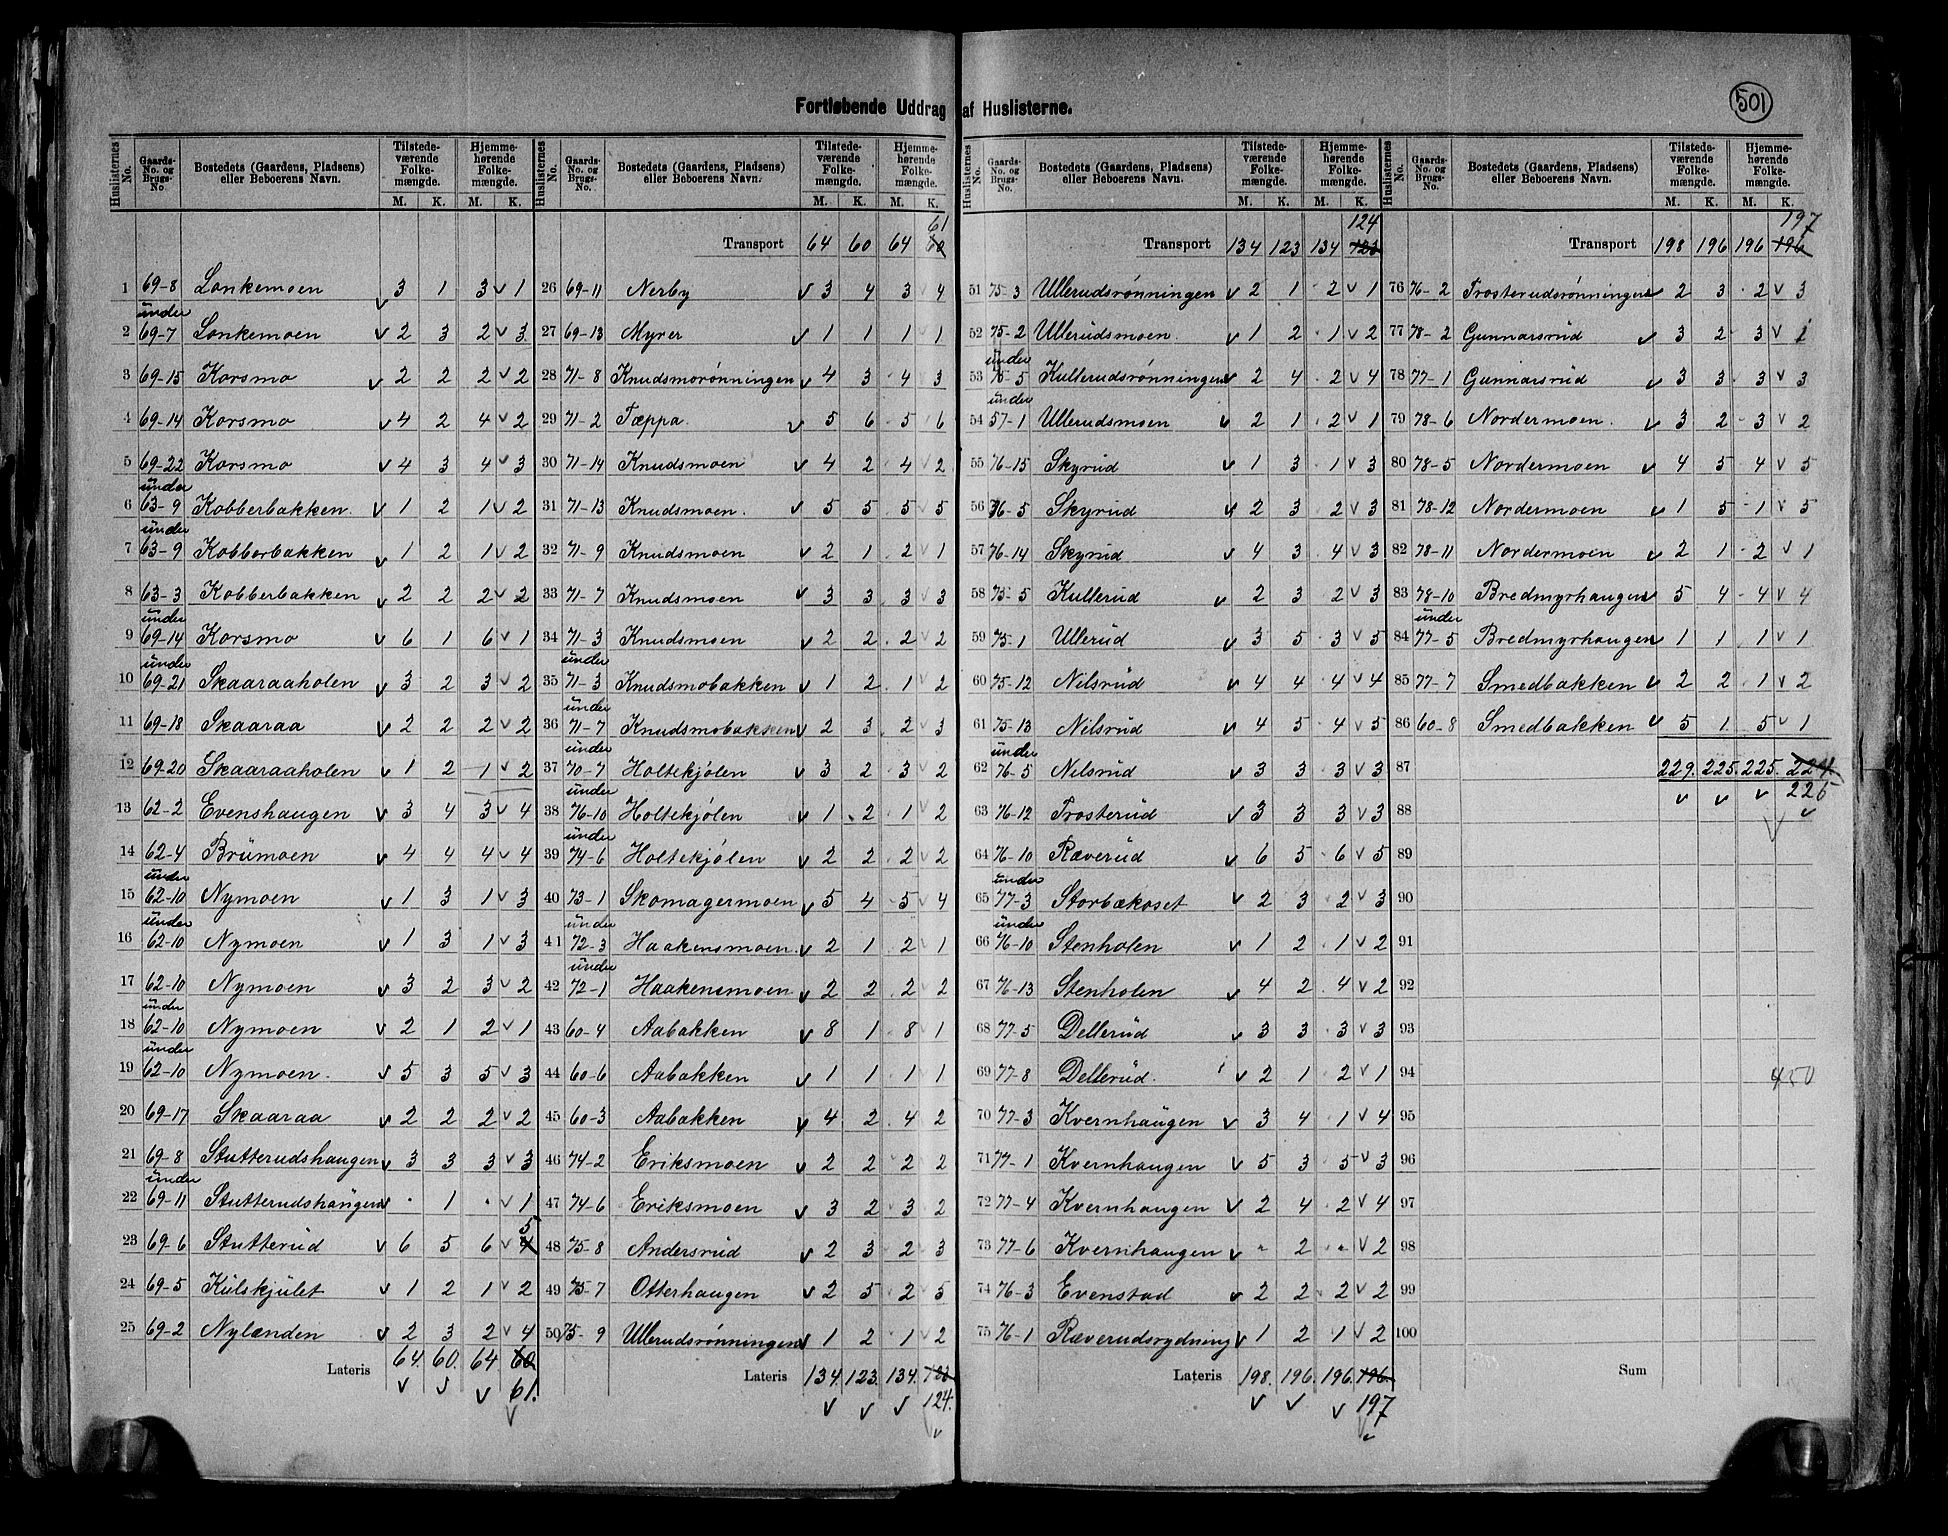 Fortløbende Uddrag af Huslisterne.
501
Huslisternes No. | Gaards-No. og Brugs-No. | Bostedets (Gaardens, Pladsens) eller Beboerens Navn. | Tilstedeværende Folkemængde. M. K. | Hjemmehørende Folkemængde. M. K.
1 69-8 Lonkemoen 3 1 3 1
2 under 69-7 Lonkemoen 2 3 2 3
3 69-15 Korsmo 2 2 2 2
4 69-14 Korsmo 4 2 4 2
5 69-22 Korsmo 4 3 4 3
6 under 63-9 Kobberbakken. 1 2 1 2
7 under 63-9 Kobberbakken 1 2 1 2
8 63-3 Kobberbakken 2 2 2 2
9 under 69-14 Korsmo 6 1 6 1
10 under 69-21 Skaaraaholen 3 2 3 2
11 69-18 Skaaraa 2 2 2 2
12 69-20 Skaaraaholen 1 2 1 2
13 62-2 Evenshaugen 3 4 3 4
14 62-4 Brumoen 4 4 4 4
15 under 62-10 Nymoen 1 3 1 3
16 under 62-10 Nymoen 1 3 1 3
17 62-10 Nymoen 3 2 3 2
18 under 62-10 Nymoen 2 1 2 1
19 under 62-10 Nymoen. 5 3 5 3
20 69-17 Skaaraa 2 2 2 2
21 69-8 Stutterudshaugen 3 3 3 3
22 under 69-11 Stutterudshaugen · 1 · 1
23 69-6 Stutterud 6 5 6 4 5
24 69-5 Kulskjulet 1 2 1 2
25 69-2 Nylænden 2 3 2 4
Lateris 64. 60. 64 60 61.
Huslisternes No. | Gaards-No. og Brugs-No. | Bostedets (Gaardens, Pladsens) eller Beboerens Navn. | Tilstedeværende Folkemængde. M. K. | Hjemmehørende Folkemængde. M. K.
Transport 64 60 64 60 61
26 69-11 Nerby 3 4 3 4
27 69-13 Myrer 1 1 1 1
28 71-8 Knudsmorønningen 4 3 4 3
29 71-2 Tæppa. 5 6 5 6
30 71-14 Knudsmoen 4 2 4 2
31 71-13 Knudsmoen. 5 5 5 5
32 71-9 Knudsmoen 2 1 2 1
33 71-7 Knudsmoen 3 3 3 3
34 71-3 Knudsmoen 2 2 2 2
35 under 71-3 Knudsmobakken 1 2 1 2
36 under 71-7 Knudsmobakken 2 3 2 3
37 under 70-7 Holtekjølen 3 2 3 2
38 under 76-10 Holtekjølen 1 2 1 2
39 under 74-6 Holtekjølen 2 2 2 2
40 73-1 Skomagermoen 5 4 5 4
41 under 72-3 Haakensmoen. 2 1 2 1
42 under 72-1 Haakensmoen 2 2 2 2
43 60-4 Aabakken 8 1 8 1
44 60-6 Aabakken 1 1 1 1
45 60-3 Aabakken 4 2 4 2
46 74-2 Eriksmoen 2 2 2 2
47 74-6 Eriksmoen 3 2 3 2
48 75-8 Andersrud 2 3 2 3
49 75-7 Otterhaugen 2 5 2 5
50 75-9 Ullerudsrønningen 1 2 1 2
Lateris 134. 123. 134. 123 124.
Huslisternes No. | Gaards-No. og Brugs-No. | Bostedets (Gaardens, Pladsens) eller Beboerens Navn. | Tilstedeværende Folkemængde. M. K. | Hjemmehørende Folkemængde. M. K.
Transport 134 123 134 123 124
51 75-3 Ullerudsrønningen 2 1 2 1
52 75-2 Ullerudsmoen. 1 2 1 2
53 under 75-5 Kullerudsrønningen 2 4 2 4
54 under 57-1 Ullerudsmoen 2 1 2 1
55 76-15 Skyrud 1 3 1 3
56 76-5 Skyrud 2 3 2 3
57 76-14 Skyrud 4 3 4 3
58 75-5 Kullerud 2 3 2 3
59 75-1 Ullerud 3 5 3 5
60 75-12 Nilsrud 4 4 4 4
61 75-13 Nilsrud 4 5 4 5
62 under 76-5 Nilsrud 3 3 3 3
63 76-12 Trosterud 3 3 3 3
64 76-10 Ræverud 6 5 6 5
65 under 77-3 Storbækoset 2 3 2 3
66 under 76-10 Stenholen 1 2 1 2
67 76-13 Stenholen 4 2 4 2
68 77-5 Dellerud 3 3 3 3
69 77-8 Dellerud. 2 1 2 1
70 77-3 Kvernhaugen 3 4 1 4
71 77-1 Kvernhaugen 5 3 5 3
72 77-4 Kvernhaugen 2 4 2 4
73 77-6 Kvernhaugen - 2 - 2
74 76-3 Evenstad 2 2 2 2
75 76-1 Ræverudsrydning 1 2 1 2
Lateris 198. 196. 196. 196. 197
Huslisternes No. | Gaards-No. og Brugs-No. | Bostedets (Gaardens, Pladsens) eller Beboerens Navn. | Tilstedeværende Folkemængde. M. K. | Hjemmehørende Folkemængde. M. K.
Transport 198 196 196 196 197
76 76-2 Trosterudsrønningen 2 3 2 3
77 78-2 Gunnarsrud 3 2 3 1
78 77-1 Gunnarsrud 3 3 3 3
79 78-6 Nordermoen. 3 2 3 2
80 78-5 Nordermoen 4 5 4 5
81 78-12 Nordermoen 1 5 1 5
82 78-11 Nordermoen 2 1 2 1
83 78-10 Bredmyrhaugen 5 4 4 4
84 under 77-5 Bredmyrhaugen 1 1 1 1
85 77-7 Smedbakken 2 2 1 2
86 60-8 Smedbakken 5 1 5 1
87 229. 225. 225. 224 225
88
89
90
91
92
93
94 450
95
96
97
98
99
100
Sum